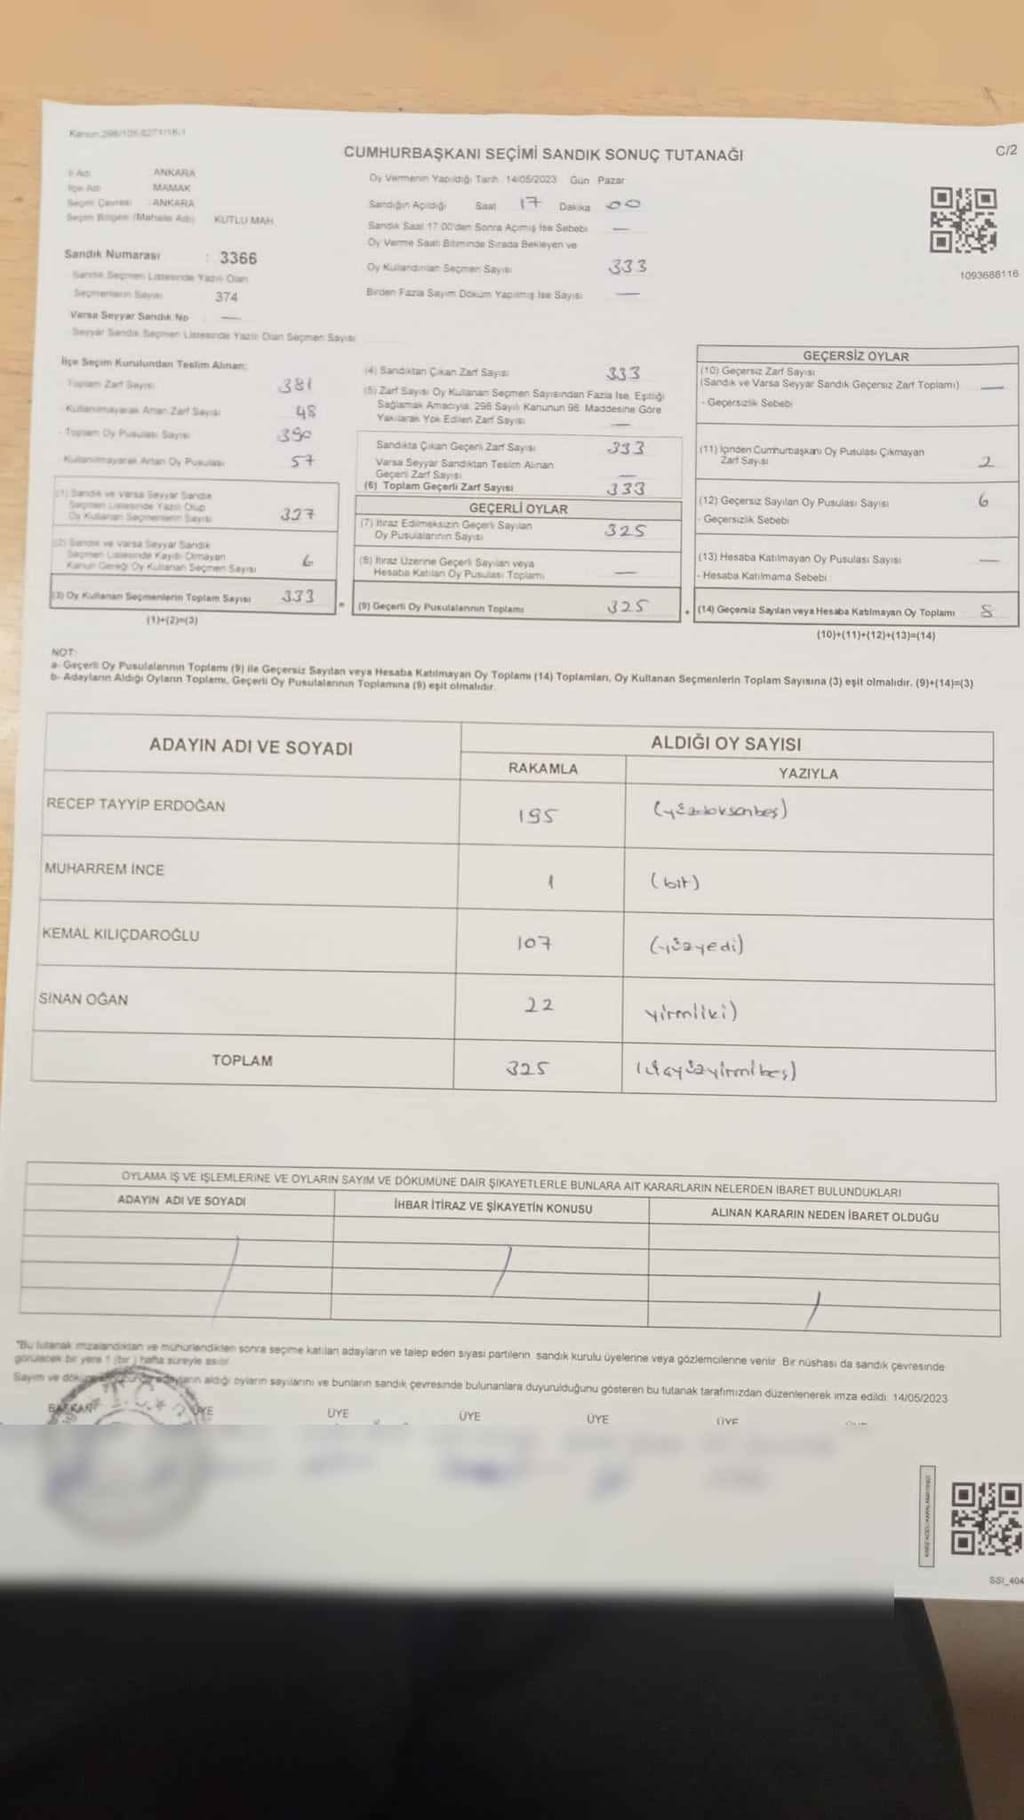 CUMHURBAŞKANI SEÇİMİ SANDIK SONUÇ TUTANAĞI
C/2
İl Adı ANKARA
İlçe Adı MAMAK
Seçim Çevresi : ANKARA
Seçim Bölgesi (Mahalle Adı) KUTLU MAH.
Oy Vermenin Yapıldığı Tarih 14/05/2023 Gün Pazar
Sandığın Açıldığı Saat 17 Dakika 00
Sandık Saat 17:00'den Sonra Açılmış İse Sebebi —
Oy Verme Saati Bitiminde Sırada Bekleyen ve
Oy Kullandırılan Seçmen Sayısı 333
Birden Fazla Sayım Döküm Yapılmış İse Sayısı —
1093688116
Sandık Numarası : 3366
Sandık Seçmen Listesinde Yazılı Olan
Seçmenlerin Sayısı 374
Varsa Seyyar Sandık No —
Seyyar Sandık Seçmen Listesinde Yazılı Olan Seçmen Sayısı
İlçe Seçim Kurulundan Teslim Alınan:
Toplam Zarf Sayısı 381
Kullanılmayarak Artan Zarf Sayısı 48
- Toplam Oy Pusulası Sayısı 390
- Kullanılmayarak Artan Oy Pusulası 57
(1) Sandık ve Varsa Seyyar Sandık
Seçmen Listesinde Yazılı Olup
Oy Kullanan Seçmenlerin Sayısı 327
(2) Sandık ve Varsa Seyyar Sandık
Seçmen Listesinde Kayıtlı Olmayan
Kanun Gereği Oy Kullanan Seçmen Sayısı 6
(3) Oy Kullanan Seçmenlerin Toplam Sayısı 333
(1)+(2)=(3)
(4) Sandıktan Çıkan Zarf Sayısı 333
(5) Zarf Sayısı Oy Kullanan Seçmen Sayısından Fazla İse, Eşitliği
Sağlamak Amacıyla, 298 Sayılı Kanunun 98. Maddesine Göre
Yakılarak Yok Edilen Zarf Sayısı —
Sandıkta Çıkan Geçerli Zarf Sayısı 333
Varsa Seyyar Sandıktan Teslim Alınan
Geçerli Zarf Sayısı —
(6) Toplam Geçerli Zarf Sayısı 333
GEÇERLİ OYLAR
(7) İtiraz Edilmeksizin Geçerli Sayılan
Oy Pusulalarının Sayısı 325
(8) İtiraz Üzerine Geçerli Sayılan veya
Hesaba Katılan Oy Pusulası Toplamı —
= (9) Geçerli Oy Pusulalarının Toplamı 325
GEÇERSİZ OYLAR
(10) Geçersiz Zarf Sayısı
(Sandık ve Varsa Seyyar Sandık Geçersiz Zarf Toplamı) —
- Geçersizlik Sebebi
(11) İçinden Cumhurbaşkanı Oy Pusulası Çıkmayan
Zarf Sayısı 2
(12) Geçersiz Sayılan Oy Pusulası Sayısı 6
- Geçersizlik Sebebi
(13) Hesaba Katılmayan Oy Pusulası Sayısı —
- Hesaba Katılmama Sebebi
+ (14) Geçersiz Sayılan veya Hesaba Katılmayan Oy Toplamı 8
(10)+(11)+(12)+(13)=(14)
NOT:
a- Geçerli Oy Pusulalarının Toplamı (9) ile Geçersiz Sayılan veya Hesaba Katılmayan Oy Toplamı (14) Toplamları, Oy Kullanan Seçmenlerin Toplam Sayısına (3) eşit olmalıdır. (9)+(14)=(3)
b- Adayların Aldığı Oyların Toplamı, Geçerli Oy Pusulalarının Toplamına (9) eşit olmalıdır.
ADAYIN ADI VE SOYADI ALDIĞI OY SAYISI
RAKAMLA YAZIYLA
RECEP TAYYİP ERDOĞAN 195 (yüzdoksanbeş)
MUHARREM İNCE 1 (bir)
KEMAL KILIÇDAROĞLU 107 (yüzyedi)
SİNAN OĞAN 22 yirmiiki)
TOPLAM 325 (üçyüzyirmibeş)
OYLAMA İŞ VE İŞLEMLERİNE VE OYLARIN SAYIM VE DÖKÜMÜNE DAİR ŞİKAYETLERLE BUNLARA AİT KARARLARIN NELERDEN İBARET BULUNDUKLARI
ADAYIN ADI VE SOYADI İHBAR İTİRAZ VE ŞİKAYETİN KONUSU ALINAN KARARIN NEDEN İBARET OLDUĞU
"Bu tutanak imzalandıktan ve mühürlendikten sonra seçime katılan adayların ve talep eden siyasi partilerin sandık kurulu üyelerine veya gözlemcilerine verilir. Bir nüshası da sandık çevresinde
görülecek bir yere 1 (bir) hafta süreyle asılır.
Sayım ve adayların aldığı oyların sayılarını ve bunların sandık çevresinde bulunanlara duyurulduğunu gösteren bu tutanak tarafımızdan düzenlenerek imza edildi. 14/05/2023
BAŞKAN ÜYE ÜYE ÜYE ÜYE ÜYE
T.C.